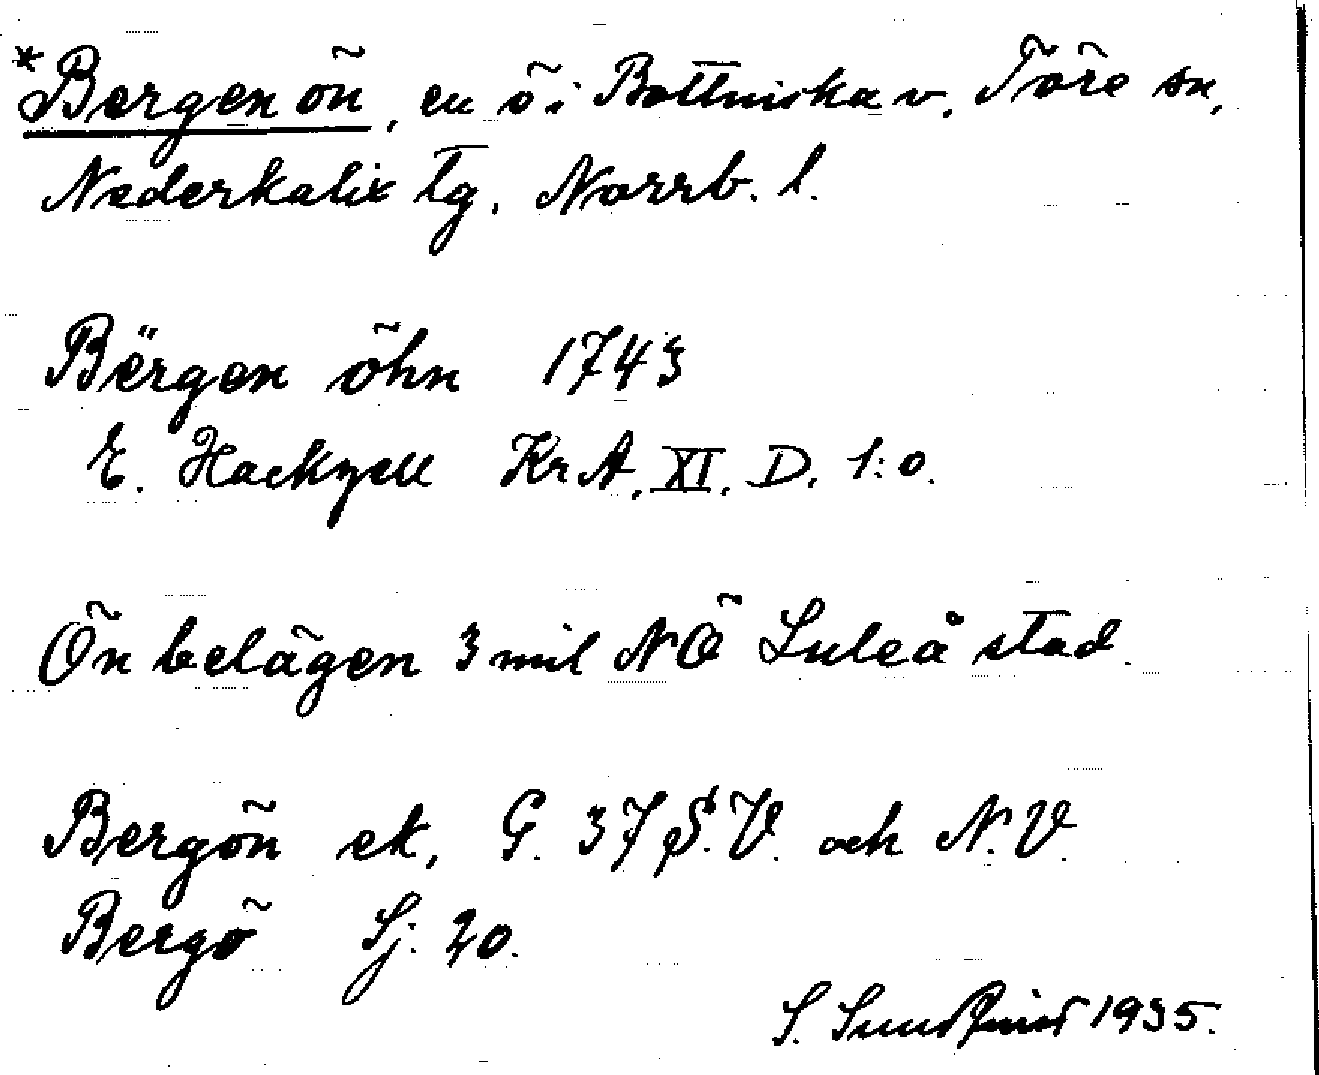 *Bergen ön, en ö i Bottniska v. Töre sn,
Nederkalix tg. Norrb. l.
Bërgen öhn 1743
E. Hackzell Kr A. XI. D. 1:o.
Ön belägen 3 mil NÖ Luleå stad.
Bergön ek, G. 37 S.V. och N.V.
Bergö Sj. 20.
S. 1935.